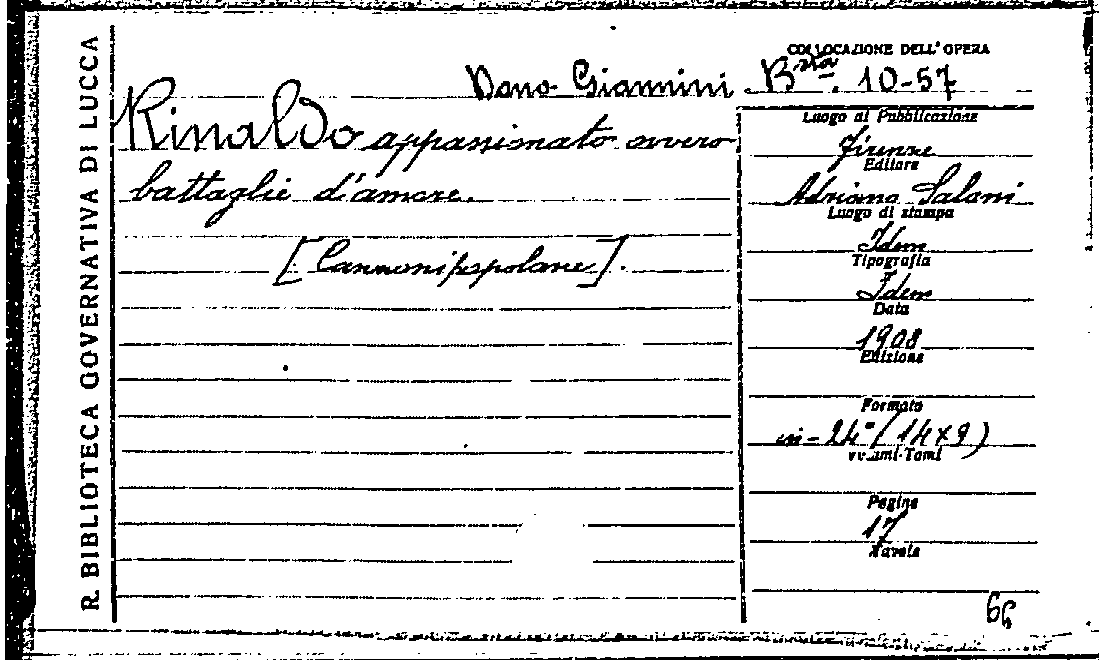 R. BIBLIOTECA GOVERNATIVA DI LUCCA
COLLOCAZIONE DELL' OPERA
Dono Giannini Bsta. 10-57
Rinaldo appassionato ovvero
battaglie d'amore.
[Canzoni popolane].
Luogo di Pubblicazione
Firenze
Editore
Adriano Salani
Luogo di stampa
Idem
Tipografia
Idem
Data
1908
Edizione
Formato
in-24° (14x9)
Volumi-Tomi
Pagine
17
Tavole
66